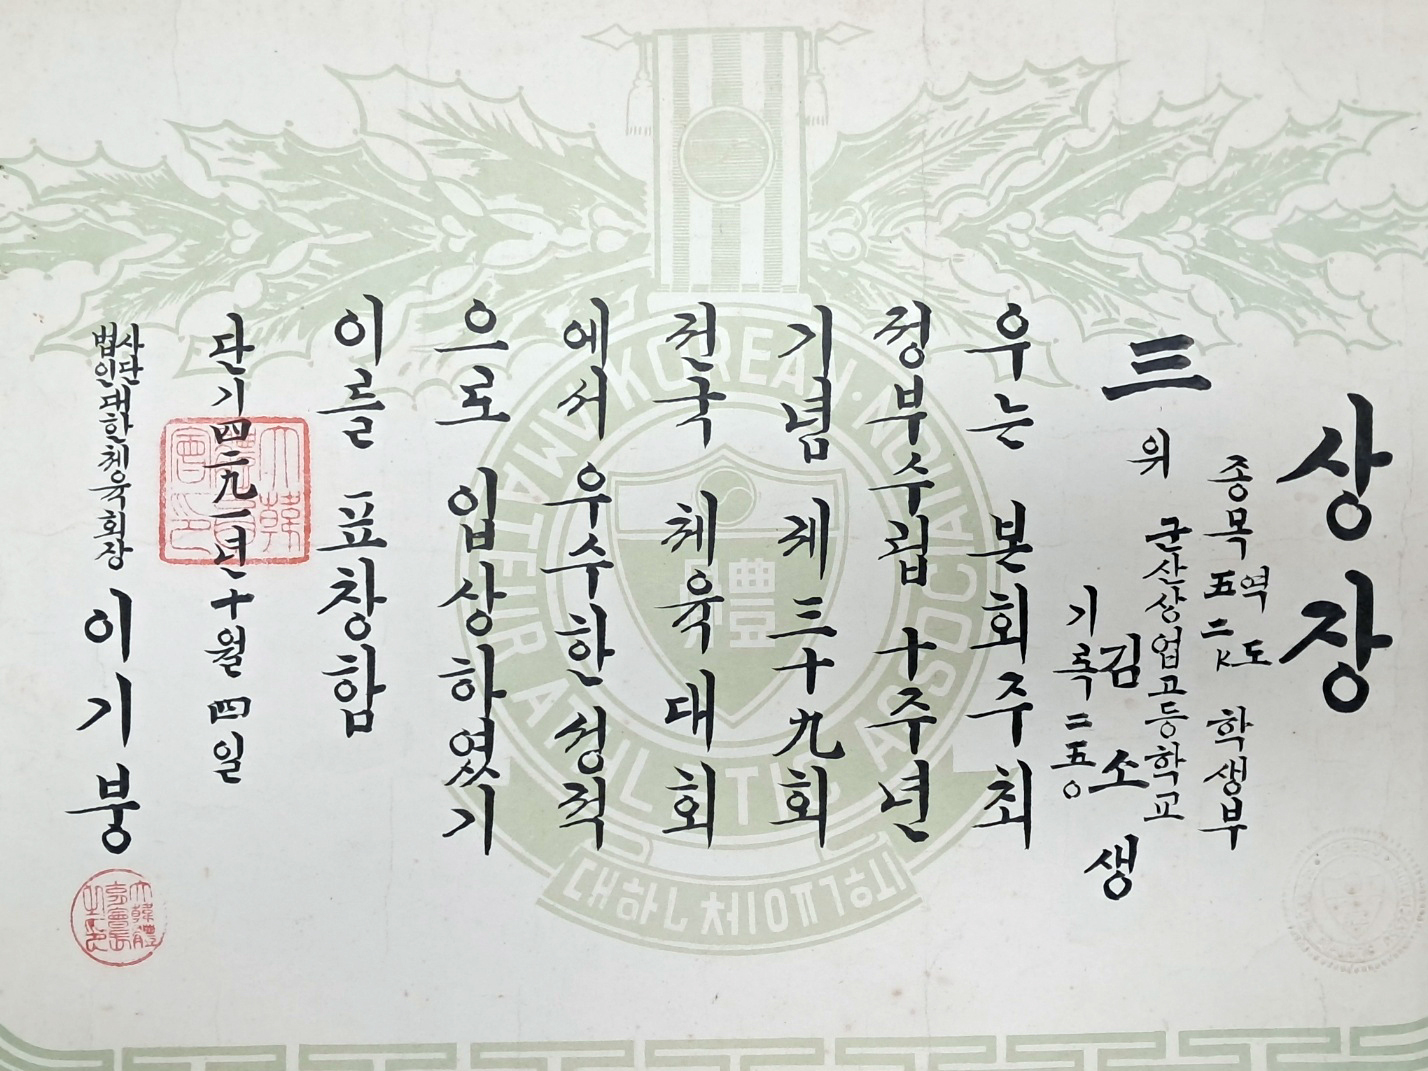 상장
종목 역도 五二K 학생부
三위 군산상업고등학교
김소생
기록 二五○
우는 본회주최
정부수립 十주년
기념 제三十九회
전국 체육대회
에서 우수한 성적
으로 입상하였기
이를 표창함
단기四二九一년 十월 四일
사단법인 대한체육회장 이기붕
KOREAN AMATEUR ATHLETIC ASSOCIATION
體
大韓體育會印